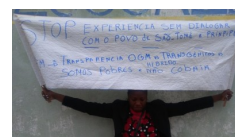 STOP EXPERIENCIA SEM DIALOGAR
COM O POVO DE SÃO TOMÉ E PRINCIPE
TRANSPARENCIA OGM = TRANSGENICO =
HIBRIDO
SOMOS POBRES = NÃO COBAIA